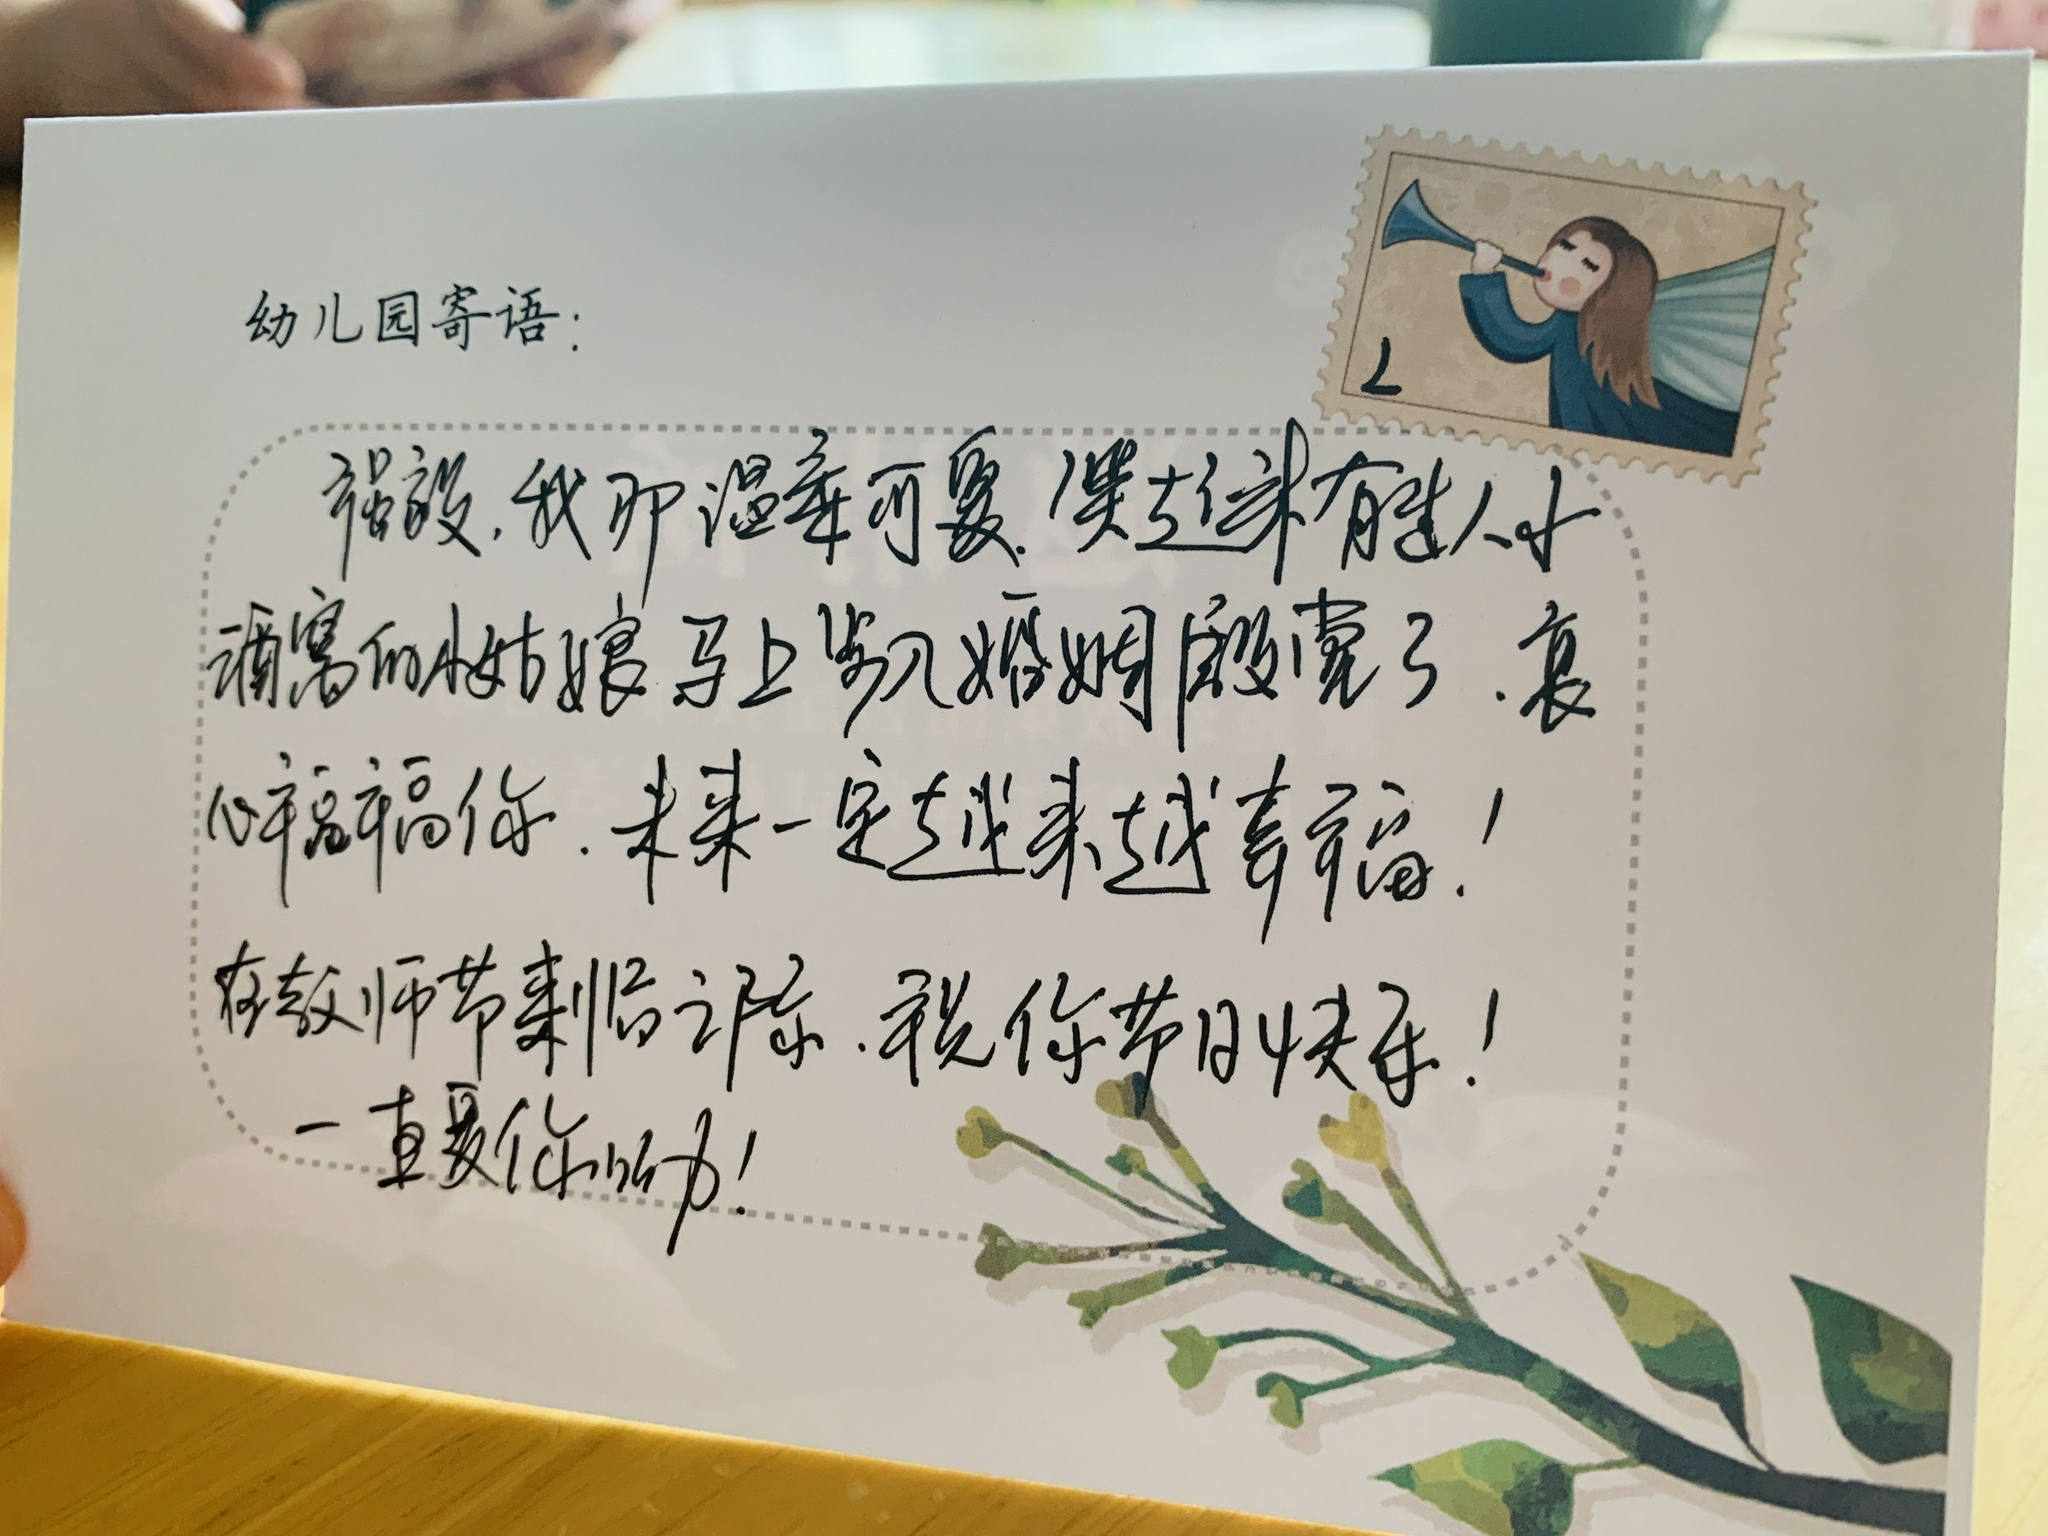 幼儿园寄语:
我那温柔可爱、笑起来有迷人小
酒窝的小姑娘马上步入婚姻殿堂了、衷
心祝福你、未来一定越来越幸福!
在教师节来临之际、祝你节日快乐!
一直爱你哟!